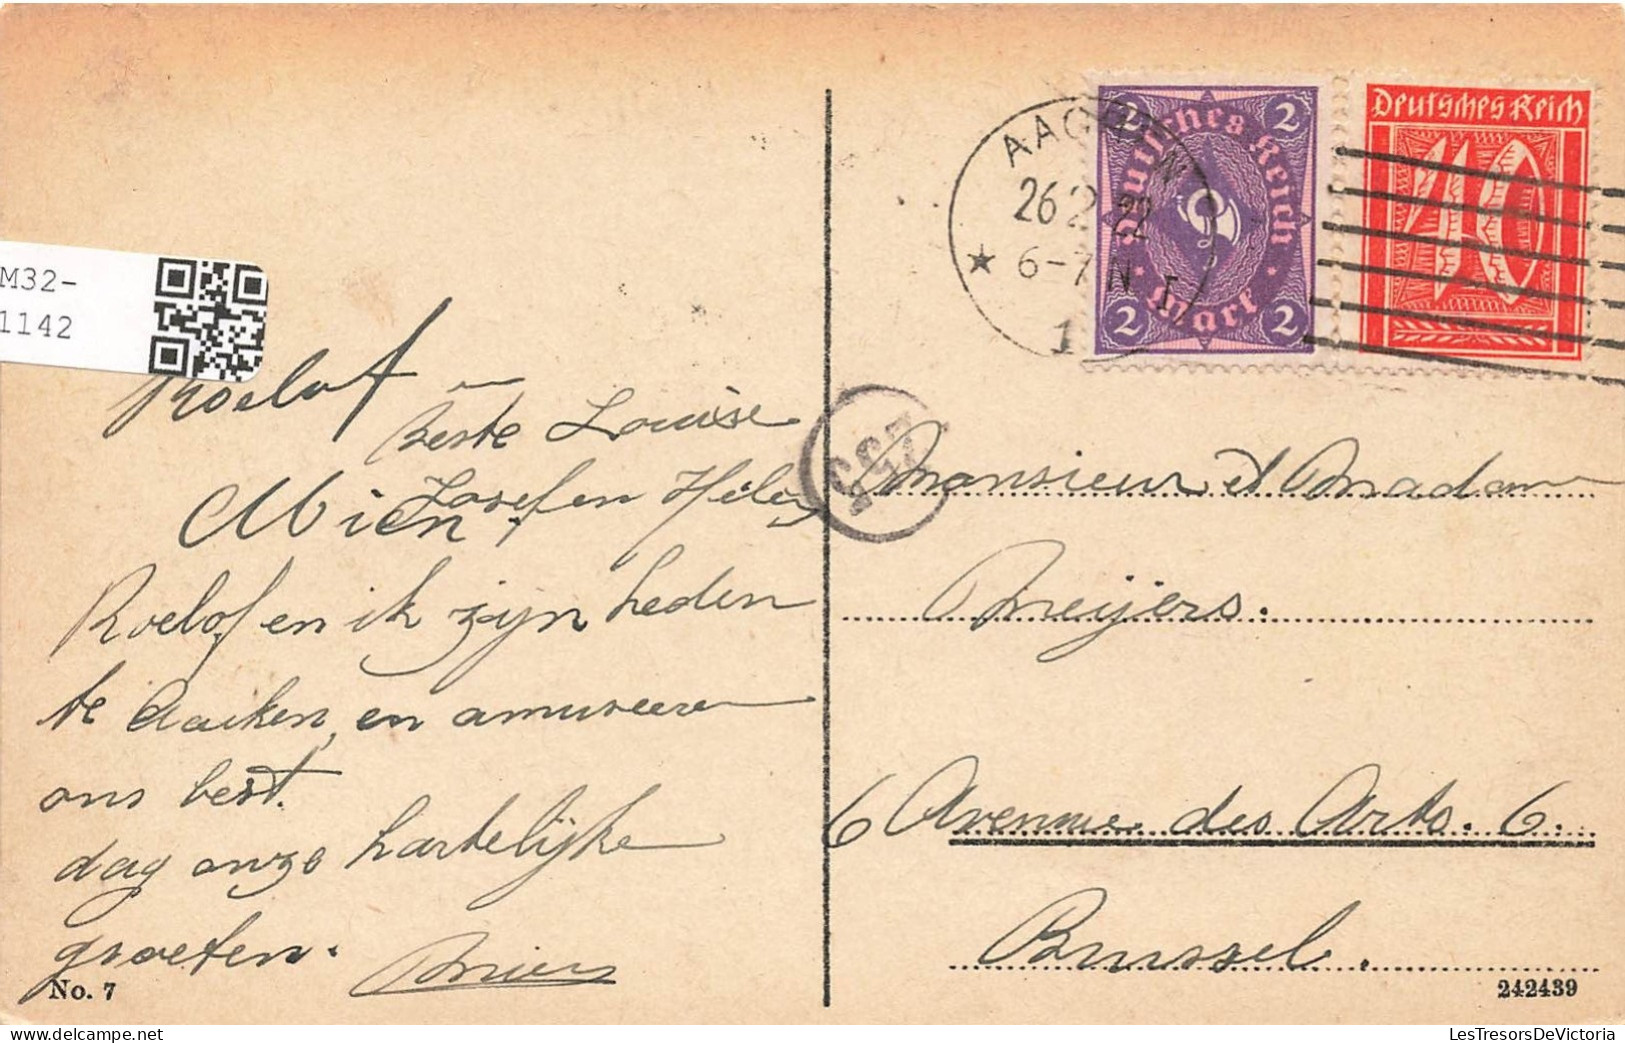 M32-
1142
Roelof
Beste Louise
Mien
Josef en Helen
Roelof en ik zijn heden
te Aaiken, en amuseeren
ons best.
dag onze hartelijke
groeten.
No. 7
AACHEN
26 2 22
6-7 N
1
2 Deutsches Reich 2
2 Mark 2
Deutsches Reich
40
Monsieur et Madame
Meijers.
6 Avenue des Arts. 6.
Brussel.
242439
LesTresorsDeVictoria